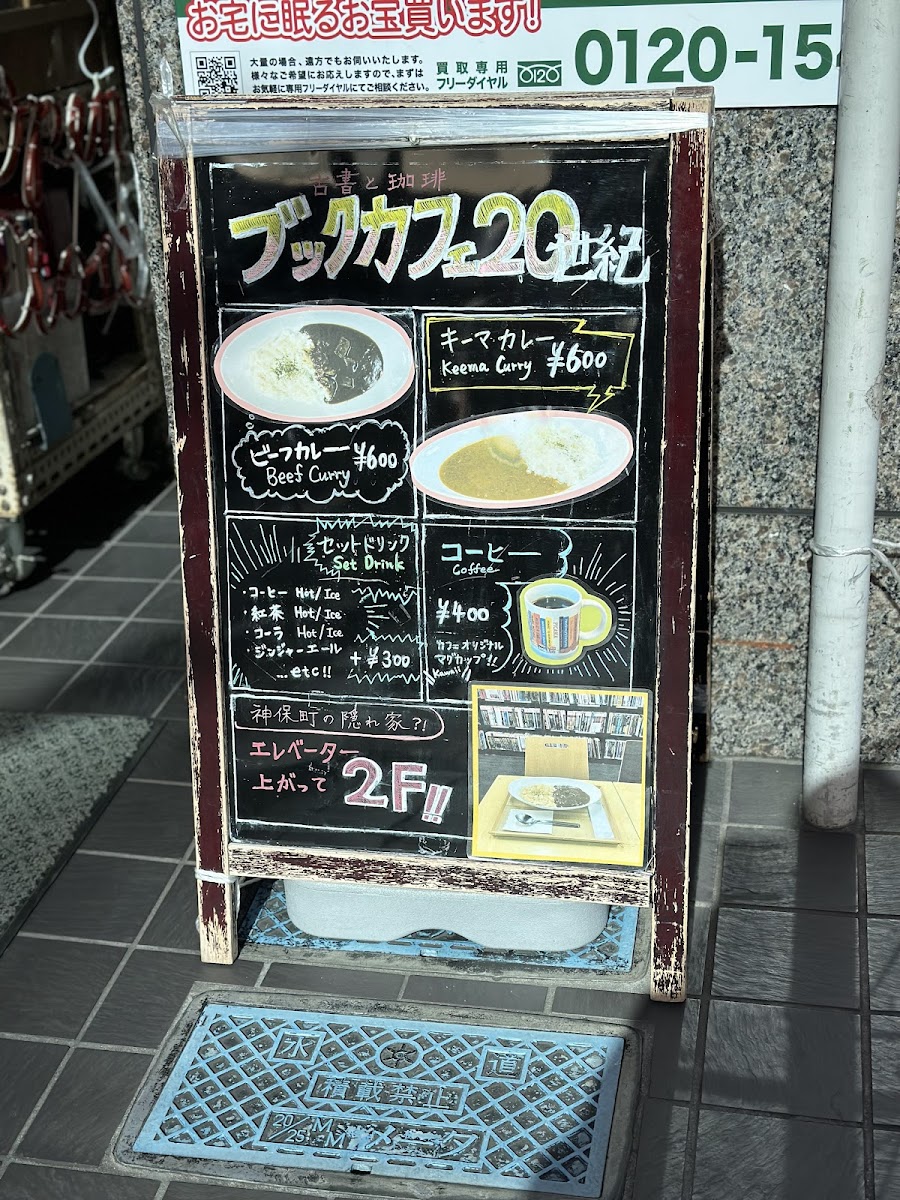 お宅に眠るお宝買います!
大量の場合、遠方でもお伺いいたします。
様々なご希望にお応えしますので、まずは
お気軽に専用フリーダイヤルにてご相談ください。
買取専用
フリーダイヤル
0120-15
古書と珈琲
ブックカフェ20世紀
キーマ・カレー
Keema Curry ¥600
ビーフカレー ¥600
Beef Curry
セットドリンク
Set Drink
・コーヒー Hot/Ice
・紅茶 Hot/Ice
・コーラ Hot/Ice
・ジンジャーエール
...etc!!
+¥300
コーヒー
Coffee
¥400
カフェオリジナル
マグカップ!!
Kawaii
神保町の隠れ家?!
エレベーター
上がって 2F!!
水道
積載禁止
20/-M
25/-M メーター